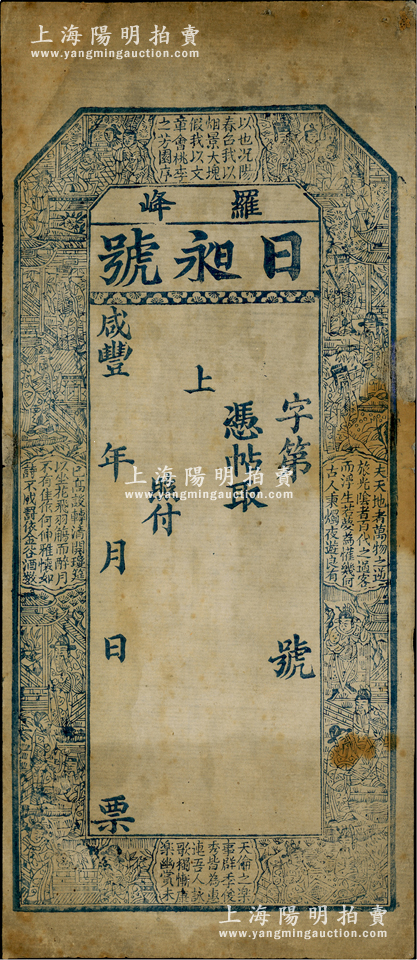 上海陽明拍賣
www.yangmingauction.com
羅峰
日昶號
字第　號
憑帖取
上
照付
咸豐　年　月　日　票
夫天地者萬物之逆
旅光陰者百代之過客
而浮生若夢為懽幾何
古人秉燭夜遊良有
以也況陽
春召我以
烟景大塊
假我以文
章會桃李
之芳園序
天倫之樂
事群季俊
秀皆為惠
連吾人詠
歌獨慚康
樂幽賞未
已高談轉清開瓊筵
以坐花飛羽觴而醉月
不有佳作何伸雅懷如
詩不成罰依金谷酒數
上海陽明拍賣
www.yangmingauction.com
上海陽明拍賣
www.yangmingauction.com